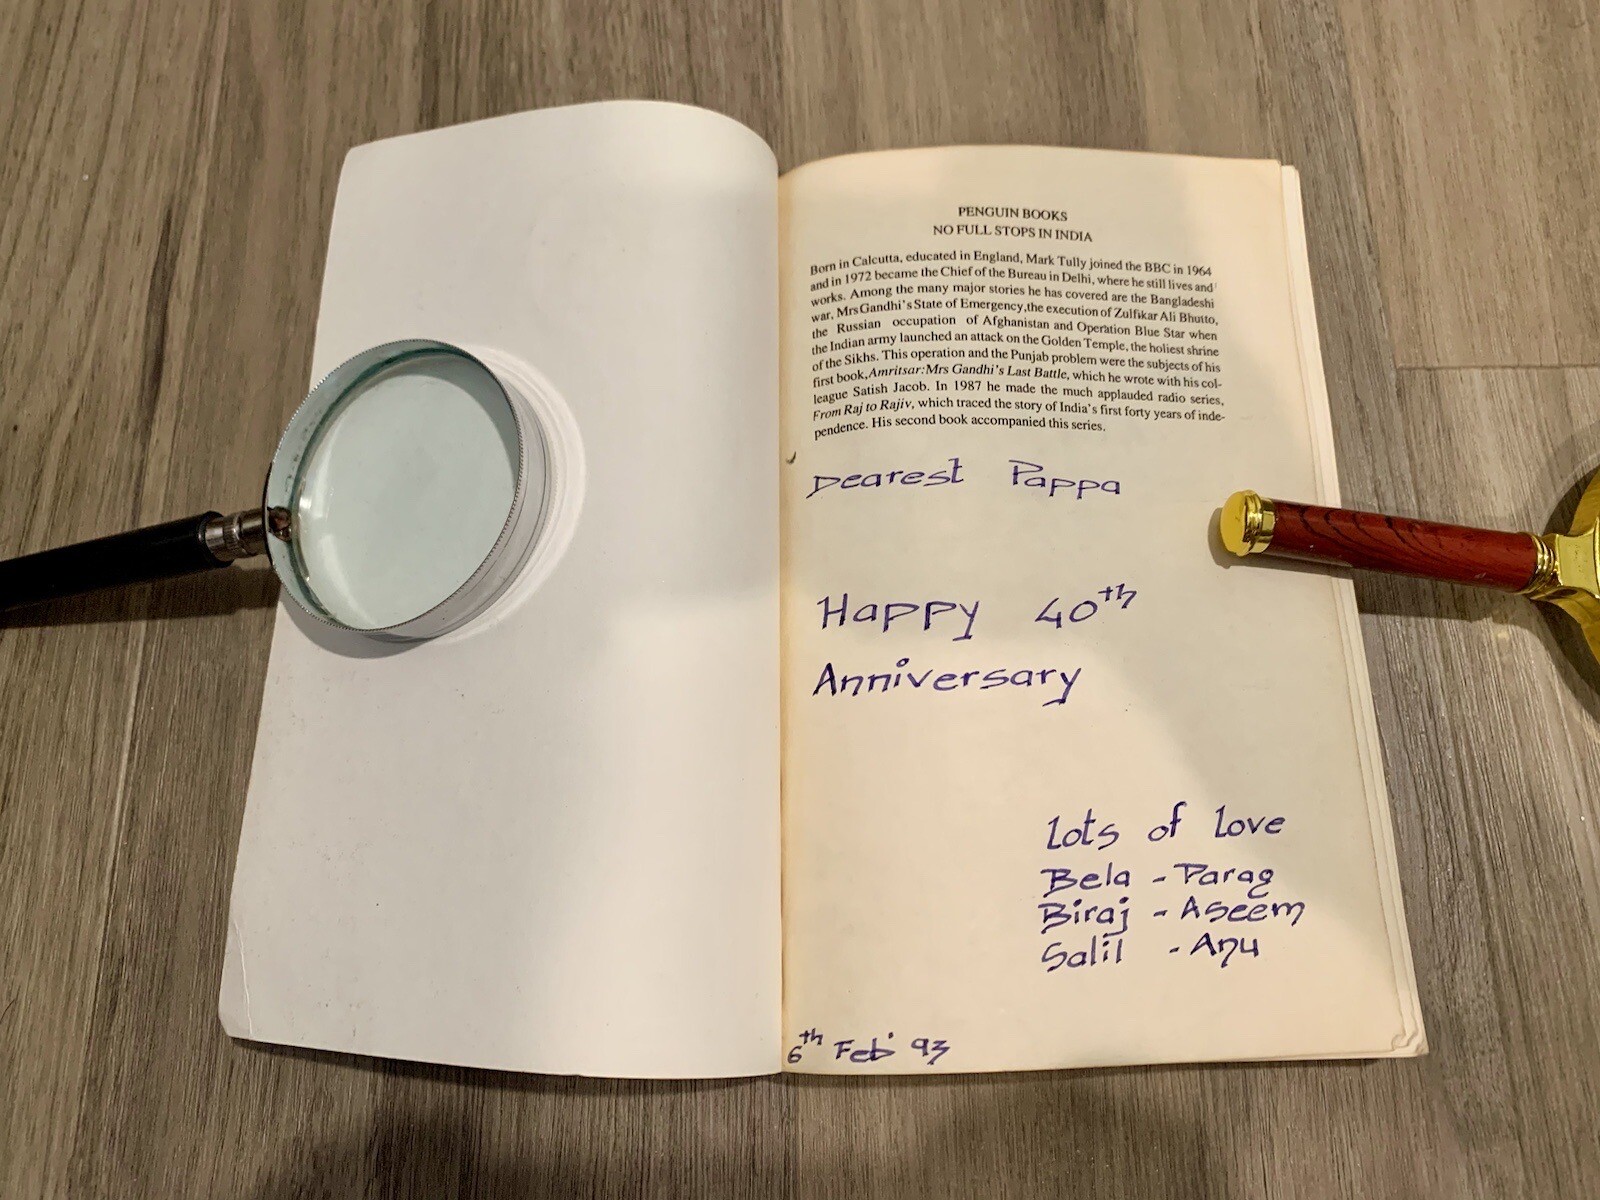 PENGUIN BOOKS
NO FULL STOPS IN INDIA
Born in Calcutta, educated in England, Mark Tully joined the BBC in 1964
and in 1972 became the Chief of the Bureau in Delhi, where he still lives and
works. Among the many major stories he has covered are the Bangladeshi
war, Mrs Gandhi's State of Emergency,the execution of Zulfikar Ali Bhutto,
the Russian occupation of Afghanistan and Operation Blue Star when
the Indian army launched an attack on the Golden Temple, the holiest shrine
of the Sikhs. This operation and the Punjab problem were the subjects of his
first book, Amritsar: Mrs Gandhi's Last Battle, which he wrote with his col-
league Satish Jacob. In 1987 he made the much applauded radio series,
From Raj to Rajiv, which traced the story of India's first forty years of inde-
pendence. His second book accompanied this series.
Dearest Pappa
Happy 40th
Anniversary
Lots of love
Bela - Parag
Biraj - Aseem
Salil - Anu
6th Feb' 93